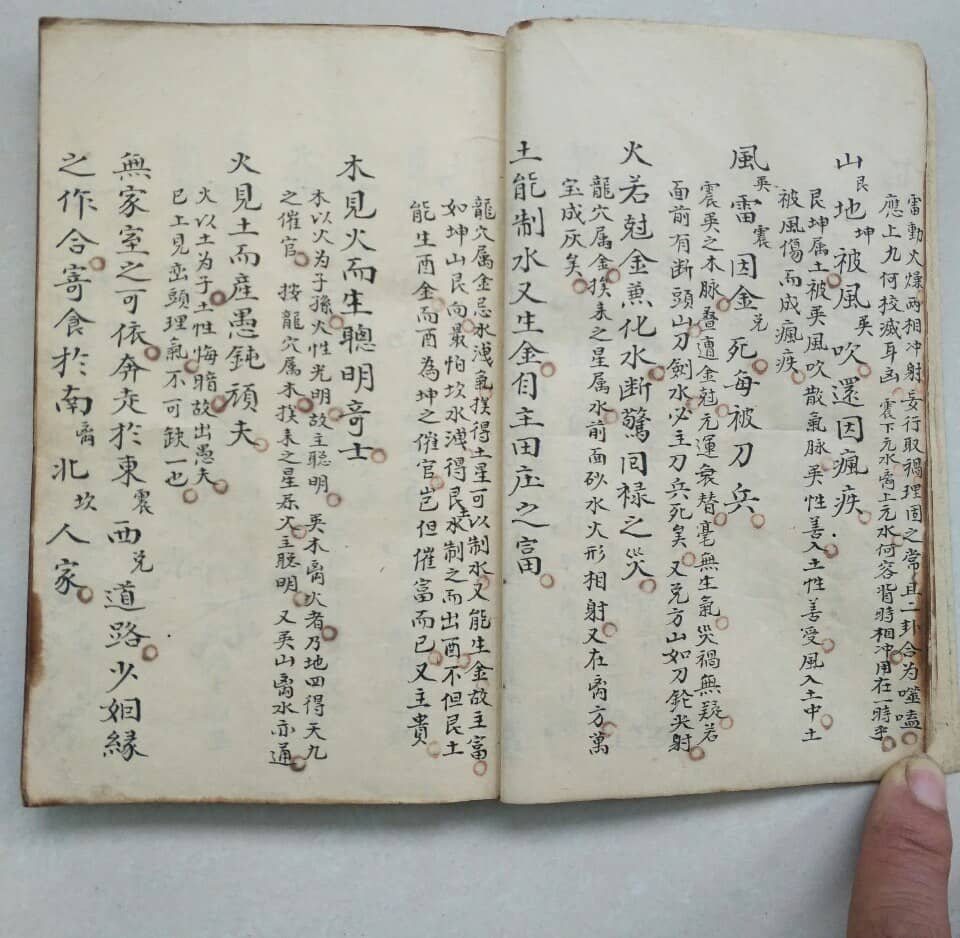 雷動火燥兩相冲射妄行取禍理固之常且二卦合为噬嗑
應上九何校滅耳凶震下元水离上元水何容背時相冲用在一時乎
山艮地坤被風巽吹還因瘋疾
艮坤属土被巽風吹散氣脉巽性善入土性善受風入土中土
被風傷而成瘋疾
風巽雷震因金兑死每被刀兵
震巽之木脉叠遭金尅元運衰替毫無生氣災禍無疑若
面前有断頭山刀劍水必主刀兵死矣又兑方山如刀鎗尖射
火若尅金兼化水断驚囘禄之災
龍穴属金挨来之星属水前面砂水火形相射又在离方萬
宝成灰矣
土能制水又生金自主田庄之富
龍穴属金忌水洩氣挨得土星可以制水又能生金故主富
如坤山艮向最怕坎水洩得艮土水制之而出酉不但艮土
能生酉金而酉為坤之催官岂但催富而已又主貴
木見火而生聰明竒士
木以火为子孫火性光明故主聪明巽木离火者乃地四得天九
之催官按龍穴属木挨来之星属火主聪明又巽山离水亦通
火見土而產愚鈍頑夫
火以土为子土性悔暗故出愚夫
已上見峦頭理氣不可缺一也
無家室之可依奔走於東震西兑道路少姻緣
之作合寄食於南离北坎人家